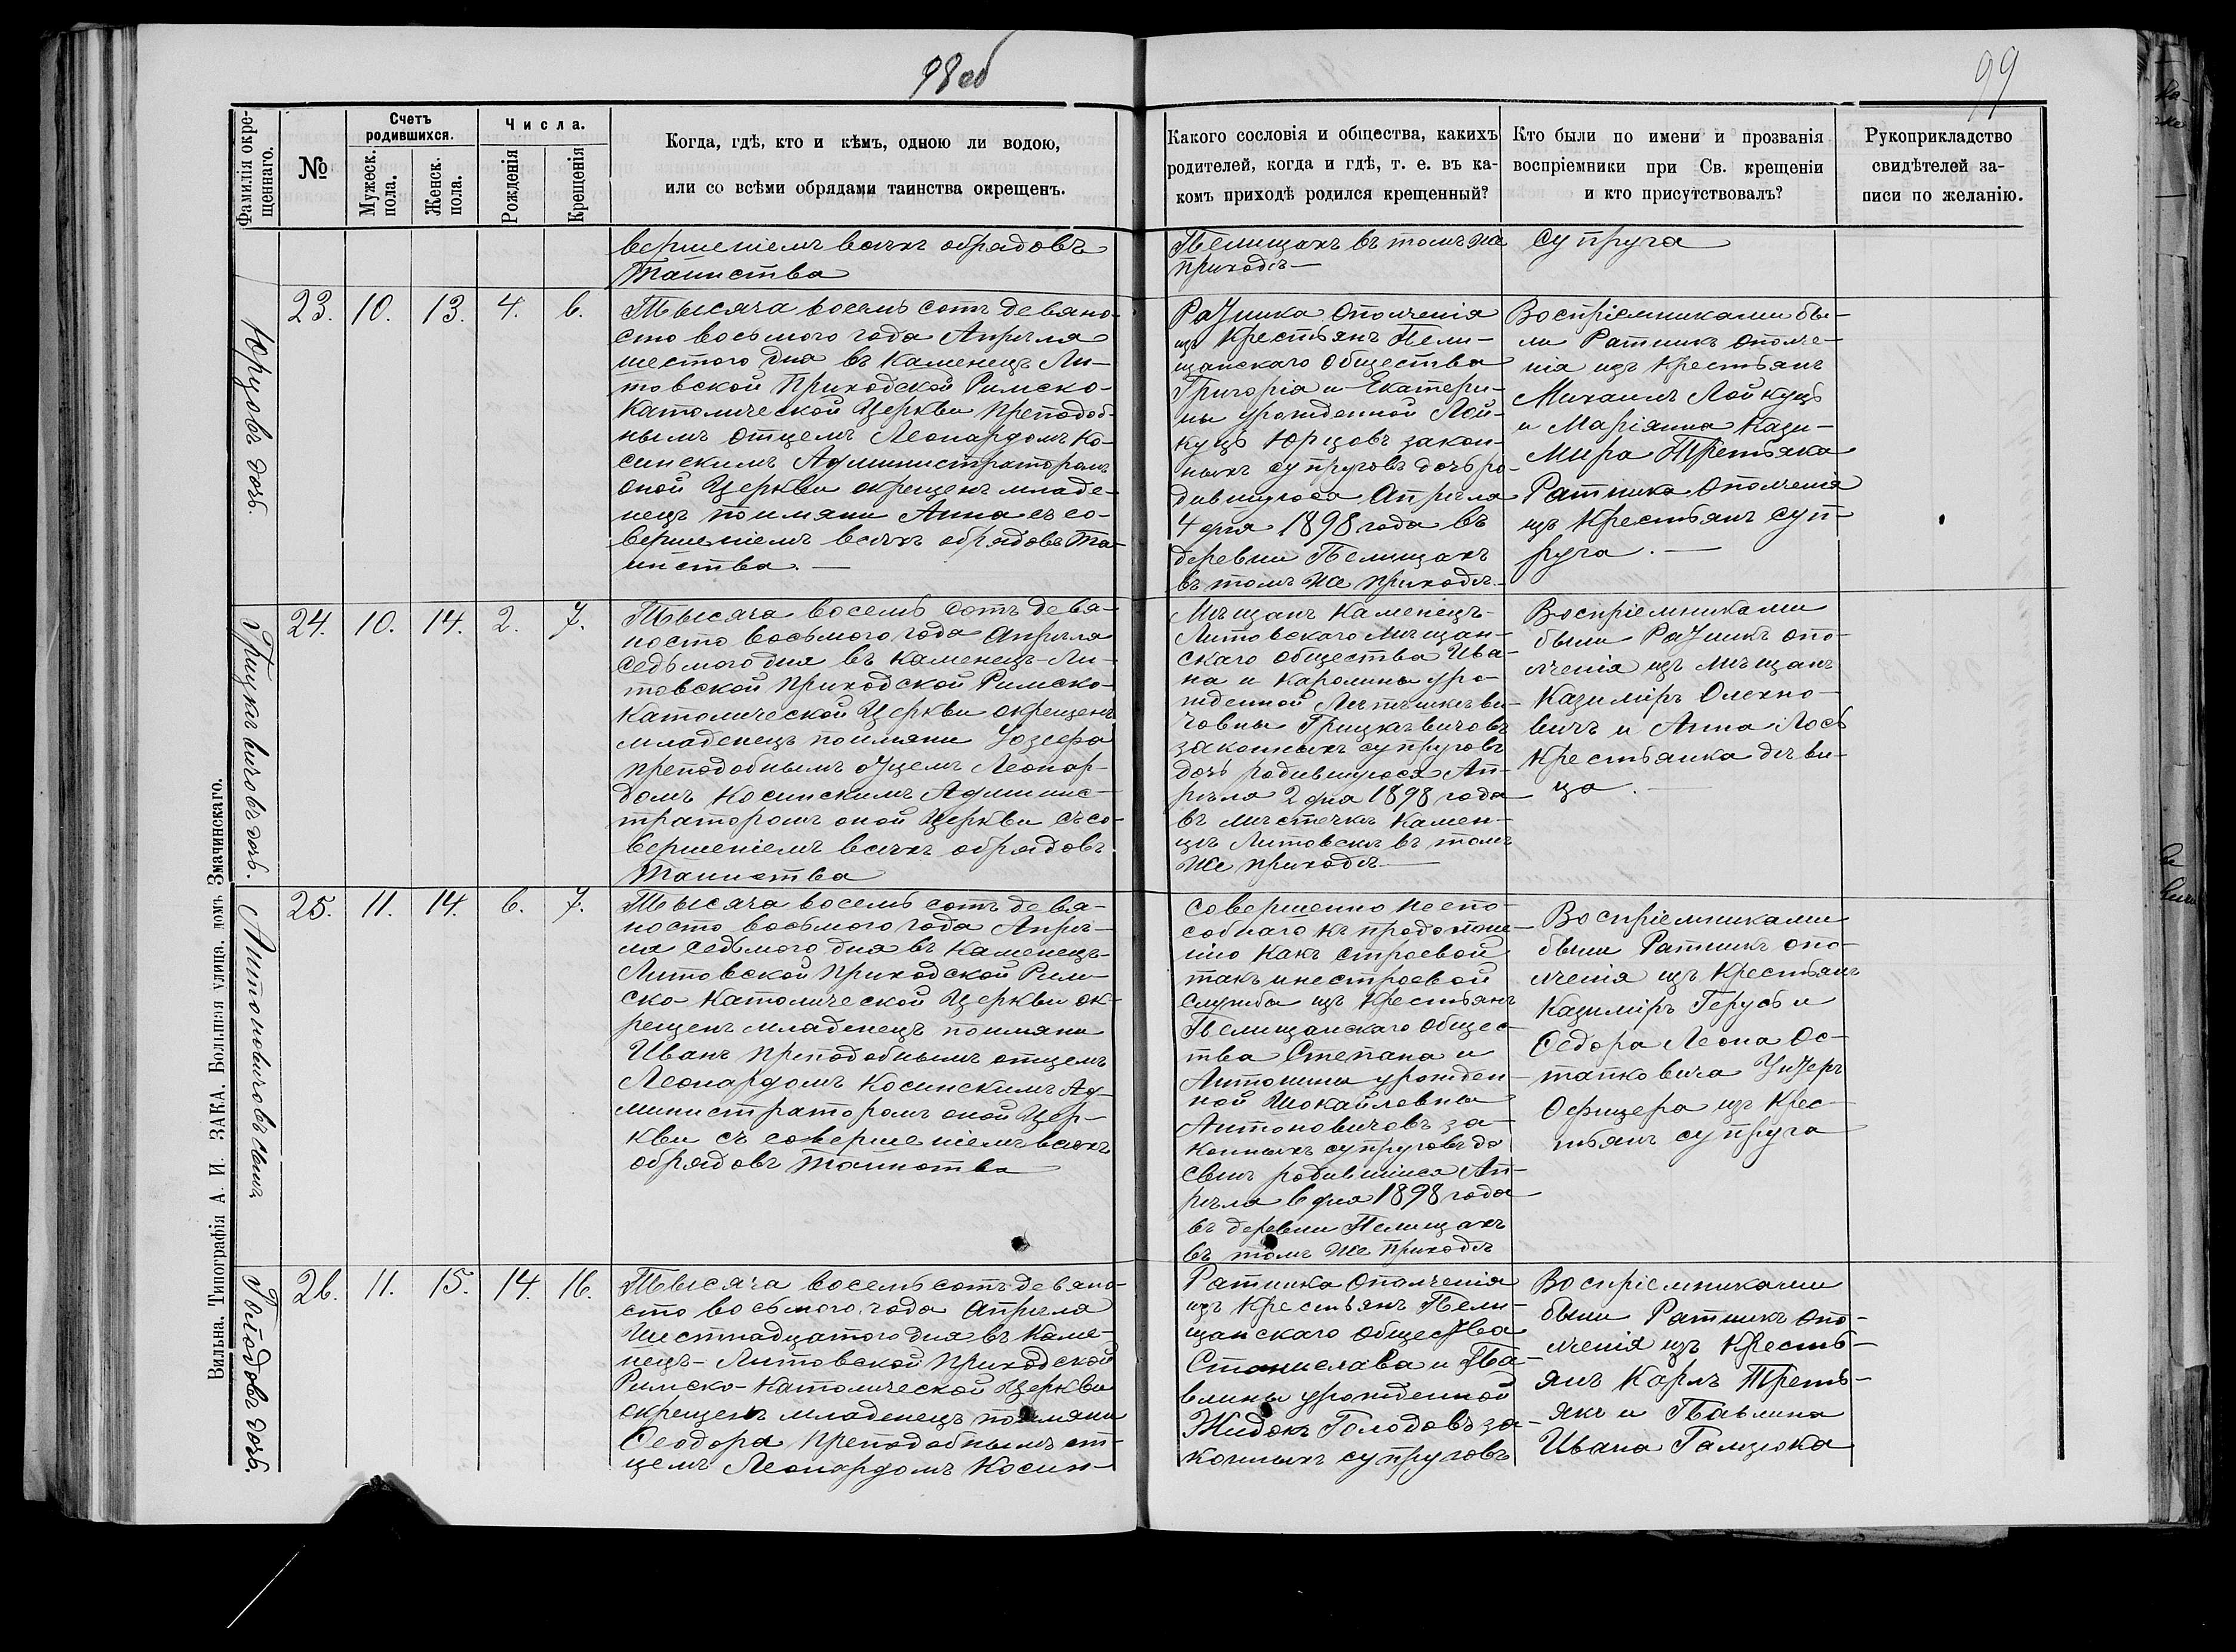 98 об
99
Фамилія окре-
щеннаго.
№
Счетъ
родившихся.
Мужеск.
пола.
Женск.
пола.
Числа.
Рожденія
Крещенія
Когда, гдѣ, кто и кѣмъ, одною ли водою,
или со всѣми обрядами таинства окрещенъ.
Какого сословія и общества, какихъ
родителей, когда и гдѣ, т. е. въ ка-
комъ приходѣ родился крещенный?
Кто были по имени и прозванія
воспріемники при Св. крещеніи
и кто присутствовалъ?
Рукоприкладство
свидѣтелей за-
писи по желанію.
вершеніемъ всѣхъ обрядовъ
Таинства
Пелищахъ въ томъ же
приходѣ —
супруга
дочь.
23. 10. 13. 4. 6.
Тысяча восемь сотъ девяно-
сто восьмого года Апрѣля
шестого дня въ Каменецъ Ли-
товской Приходской Римско-
Католической Церкви преподоб-
нымъ отцемъ Леонардомъ Ко-
синскимъ Администраторомъ
оной Церкви окрещенъ младе-
нецъ поимяни Анна съ со-
вершеніемъ всѣхъ обрядовъ Та-
инства. —
Ратника Ополченія
изъ Крестьянъ Пели-
щанскаго Общества
Григорія и Екатери-
ны урожденной Лой-
куцъ Юрцовъ закон-
ныхъ супруговъ дочь ро-
дившуюся Апрѣля
4 дня 1898 года въ
деревни Пелищахъ
въ томъ же приходѣ. —
Воспріемниками бы-
ли Ратникъ ополче-
нія изъ Крестьянъ
Михаилъ Лойкуцъ
и Маріянна Кази-
мира Третьяка
Ратника Ополченія
изъ Крестьянъ суп-
руга. —
Грицкѣвичовъ дочь.
24. 10. 14. 2. 7.
Тысяча восемь сотъ девя-
носто восьмого года Апрѣля
седьмого дня въ Каменецъ-Ли-
товской приходской Римско-
Католической Церкви окрещенъ
младенецъ поимяни Іозефа
преподобнымъ отцемъ Леонар-
домъ Косинскимъ Админис-
траторомъ оной Церкви съ со-
вершеніемъ всѣхъ обрядовъ
Таинства
Мѣщанъ Каменецъ-
Литовскаго Мѣщан-
скаго общества Ива-
на и Каролины уро-
жденной
човны Грицкѣвичовъ
законныхъ супруговъ
дочь родившуюся Ап-
рѣля 2 дня 1898 года
въ мѣстечкѣ Камен-
цѣ Литовскѣ въ томъ
же приходѣ —
Воспріемниками
были Ратникъ опо-
лченія изъ мѣщанъ
Казиміръ Олехно-
вичъ и Анна Лось
Крестьянка дѣви-
ца. —
Антоновичовъ сынъ
25. 11. 14. 6. 7.
Тысяча восемь сотъ девя-
носто восьмого года Апрѣ-
ля седьмого дня въ Каменецъ-
Литовской приходской Рим-
ско-Католической Церкви ок-
рещенъ младенецъ поимяни
Иванъ преподобнымъ отцемъ
Леонардомъ Косинскимъ Ад-
министраторомъ оной Цер-
кви съ совершеніемъ всѣхъ
обрядовъ Таинства
совершенно неспо-
собнаго къ продолже-
нію какъ строевой
такъ и нестроевой
служба изъ Крестьянъ
Пелищанскаго Общес-
тва Степана и
Антонины урожден-
ной Шокайловны
Антоновичовъ за-
конныхъ супруговъ да
сынъ родившійся Ап-
рѣля 6 дня 1898 года
въ деревни Пелищахъ
въ томъ же приходѣ
Воспріемниками
были Ратникъ опо-
лченія изъ Крестьянъ
Казиміръ Герусь и
Ѳедора Леона Ос-
тапковича Унтеръ
Офицера изъ Крес-
тьянъ супруга
Голодовъ дочь.
26. 11. 15. 14. 16.
Тысяча восемь сотъ девяно-
сто восьмого года Апрѣля
Шестнадцатого дня въ Каме-
нецъ-Литовской приходской
Римско-Католической Церкви
окрещенъ младенецъ поимяни
Ѳеодора преподобнымъ от-
цемъ Леонардомъ Косин-
Ратника Ополченія
изъ Крестьянъ Пели-
щанскаго общества
Станислава и Па-
влины урожденной
Жидокъ Голодовъ за-
конныхъ супруговъ
Воспріемниками
были Ратникъ опо-
лченія изъ Кресть-
янъ Карлъ Треть-
якъ и Павлина
Ивана Галцюка
Вильна. Типографія А. И. ЗАКА. Большая улица. домъ Змачинскаго.